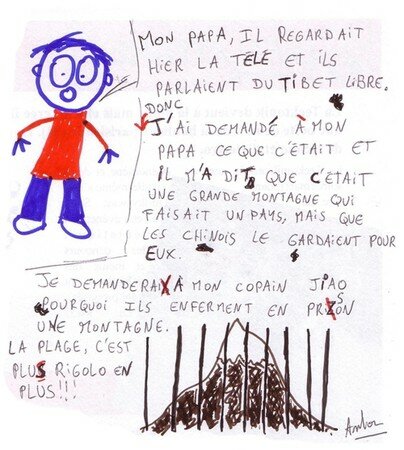 MON PAPA, IL REGARDAIT
HIER LA TÉLÉ ET ILS
PARLAIENT DU TIBET LIBRE.
DONC
J'AI DEMANDÉ À MON
PAPA CE QUE C'ÉTAIT ET
IL M'A DIT QUE C'ÉTAIT
UNE GRANDE MONTAGNE QUI
FAISAIT UN PAYS, MAIS QUE
LES CHINOIS LE GARDAIENT POUR
EUX.
JE DEMANDERAI À MON COPAIN JIAO
POURQUOI ILS ENFERMENT EN PRISON
UNE MONTAGNE.
LA PLAGE, C'EST
PLUS RIGOLO EN
PLUS!!!